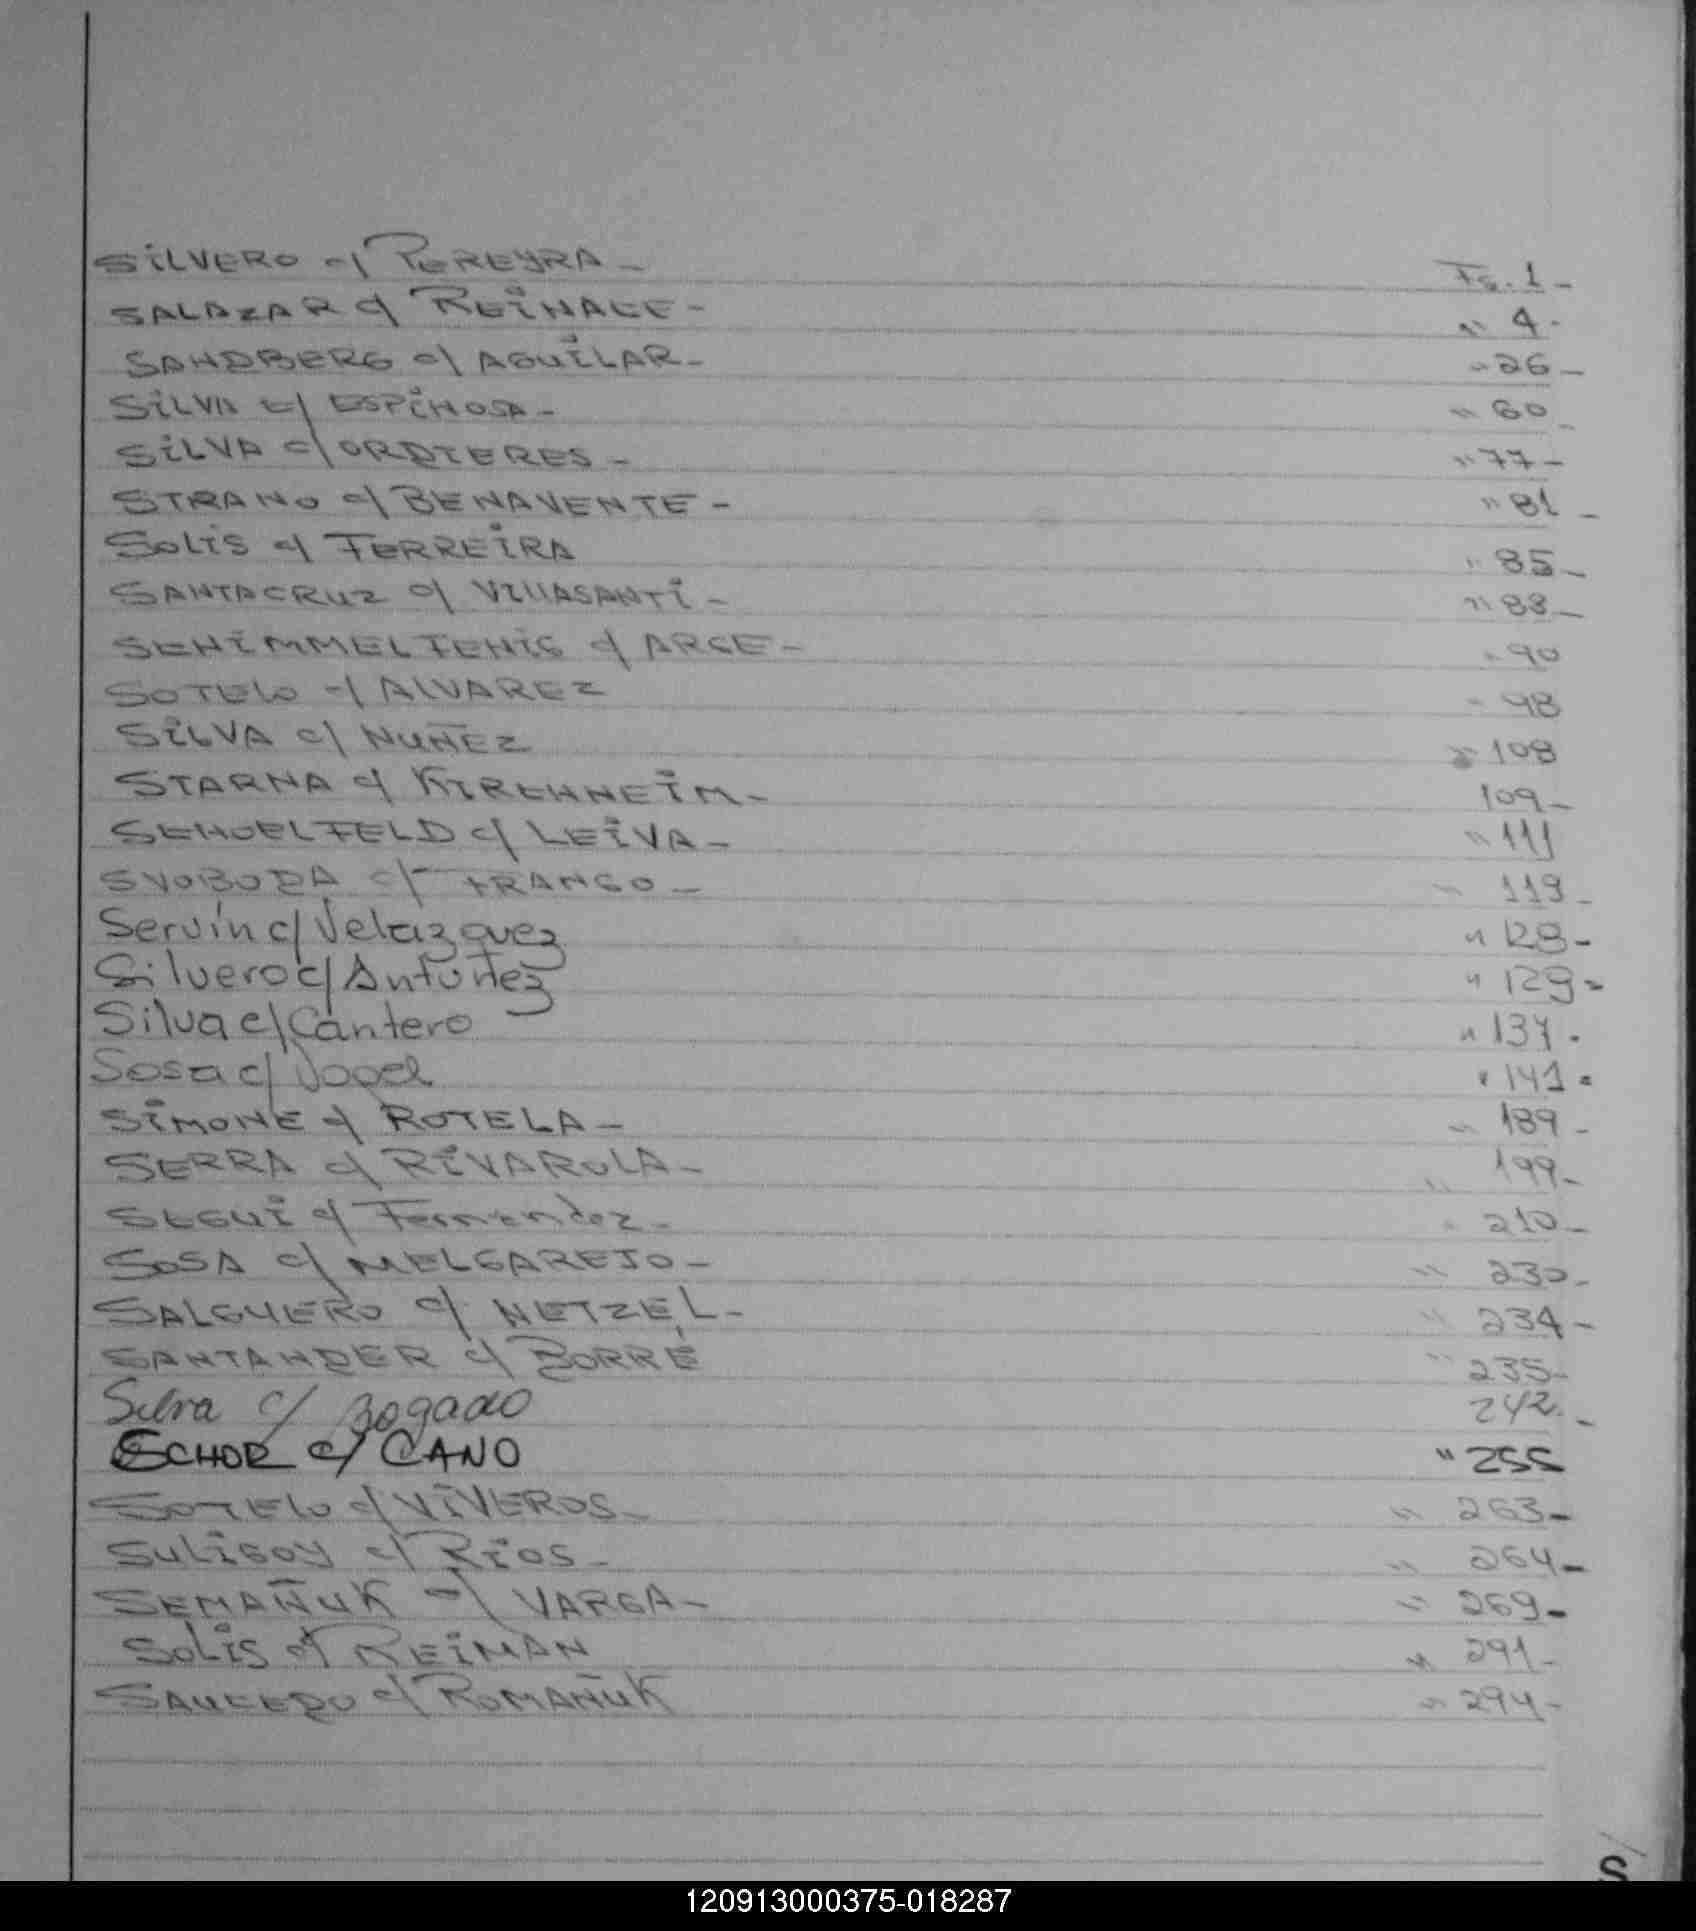 SILVERO c/ PEREYRA - Fs. 1 -
SALAZAR c/ REINALE - " 4 -
SANDBERG c/ AGUILAR - " 26 -
SILVA c/ ESPINOSA - " 60 -
SILVA c/ ORDTERES - " 77 -
STRANO c/ BENAVENTE - " 81 -
SOLIS c/ FERREIRA " 85 -
SANTACRUZ c/ VILLASANTI - " 88 -
SCHIMMELFENIG c/ ARCE - " 90
SOTELO c/ ALVAREZ " 98
SILVA c/ NUÑEZ " 108
STARNA c/ KIRCHNEIM - 109 -
SCHOELFELD c/ LEIVA - " 111
SVOBODA c/ FRANCO - " 119 -
Servín c/ Velazquez " 128 -
Silvero c/ Antuñez " 129 -
Silva c/ Cantero " 137 -
Sosa c/ " 141 -
SIMONE c/ ROTELA - " 189 -
SERRA c/ RIVAROLA - " 199 -
SEGUI c/ Fernandez - " 210 -
SOSA c/ MELGAREJO - " 230 -
SALGUERO c/ NETZEL - " 234 -
SANTANDER c/ BORRÉ " 235 -
Silva c/ Bogado 242 -
SCHOR c/ CANO " 255
SOTELO c/ VIVEROS - " 263 -
SULIGOY c/ RIOS - " 264 -
SEMAÑUK c/ VARGA - " 269 -
SOLIS c/ REIMAN " 291 -
SAUCEDO c/ ROMAÑUK " 294 -
S
120913000375-018287